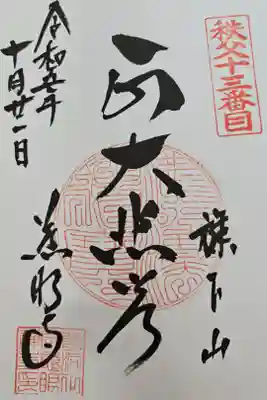 秩父十三番目
旗下山
正大悲
慈眼寺
令和五年
十月廿一日